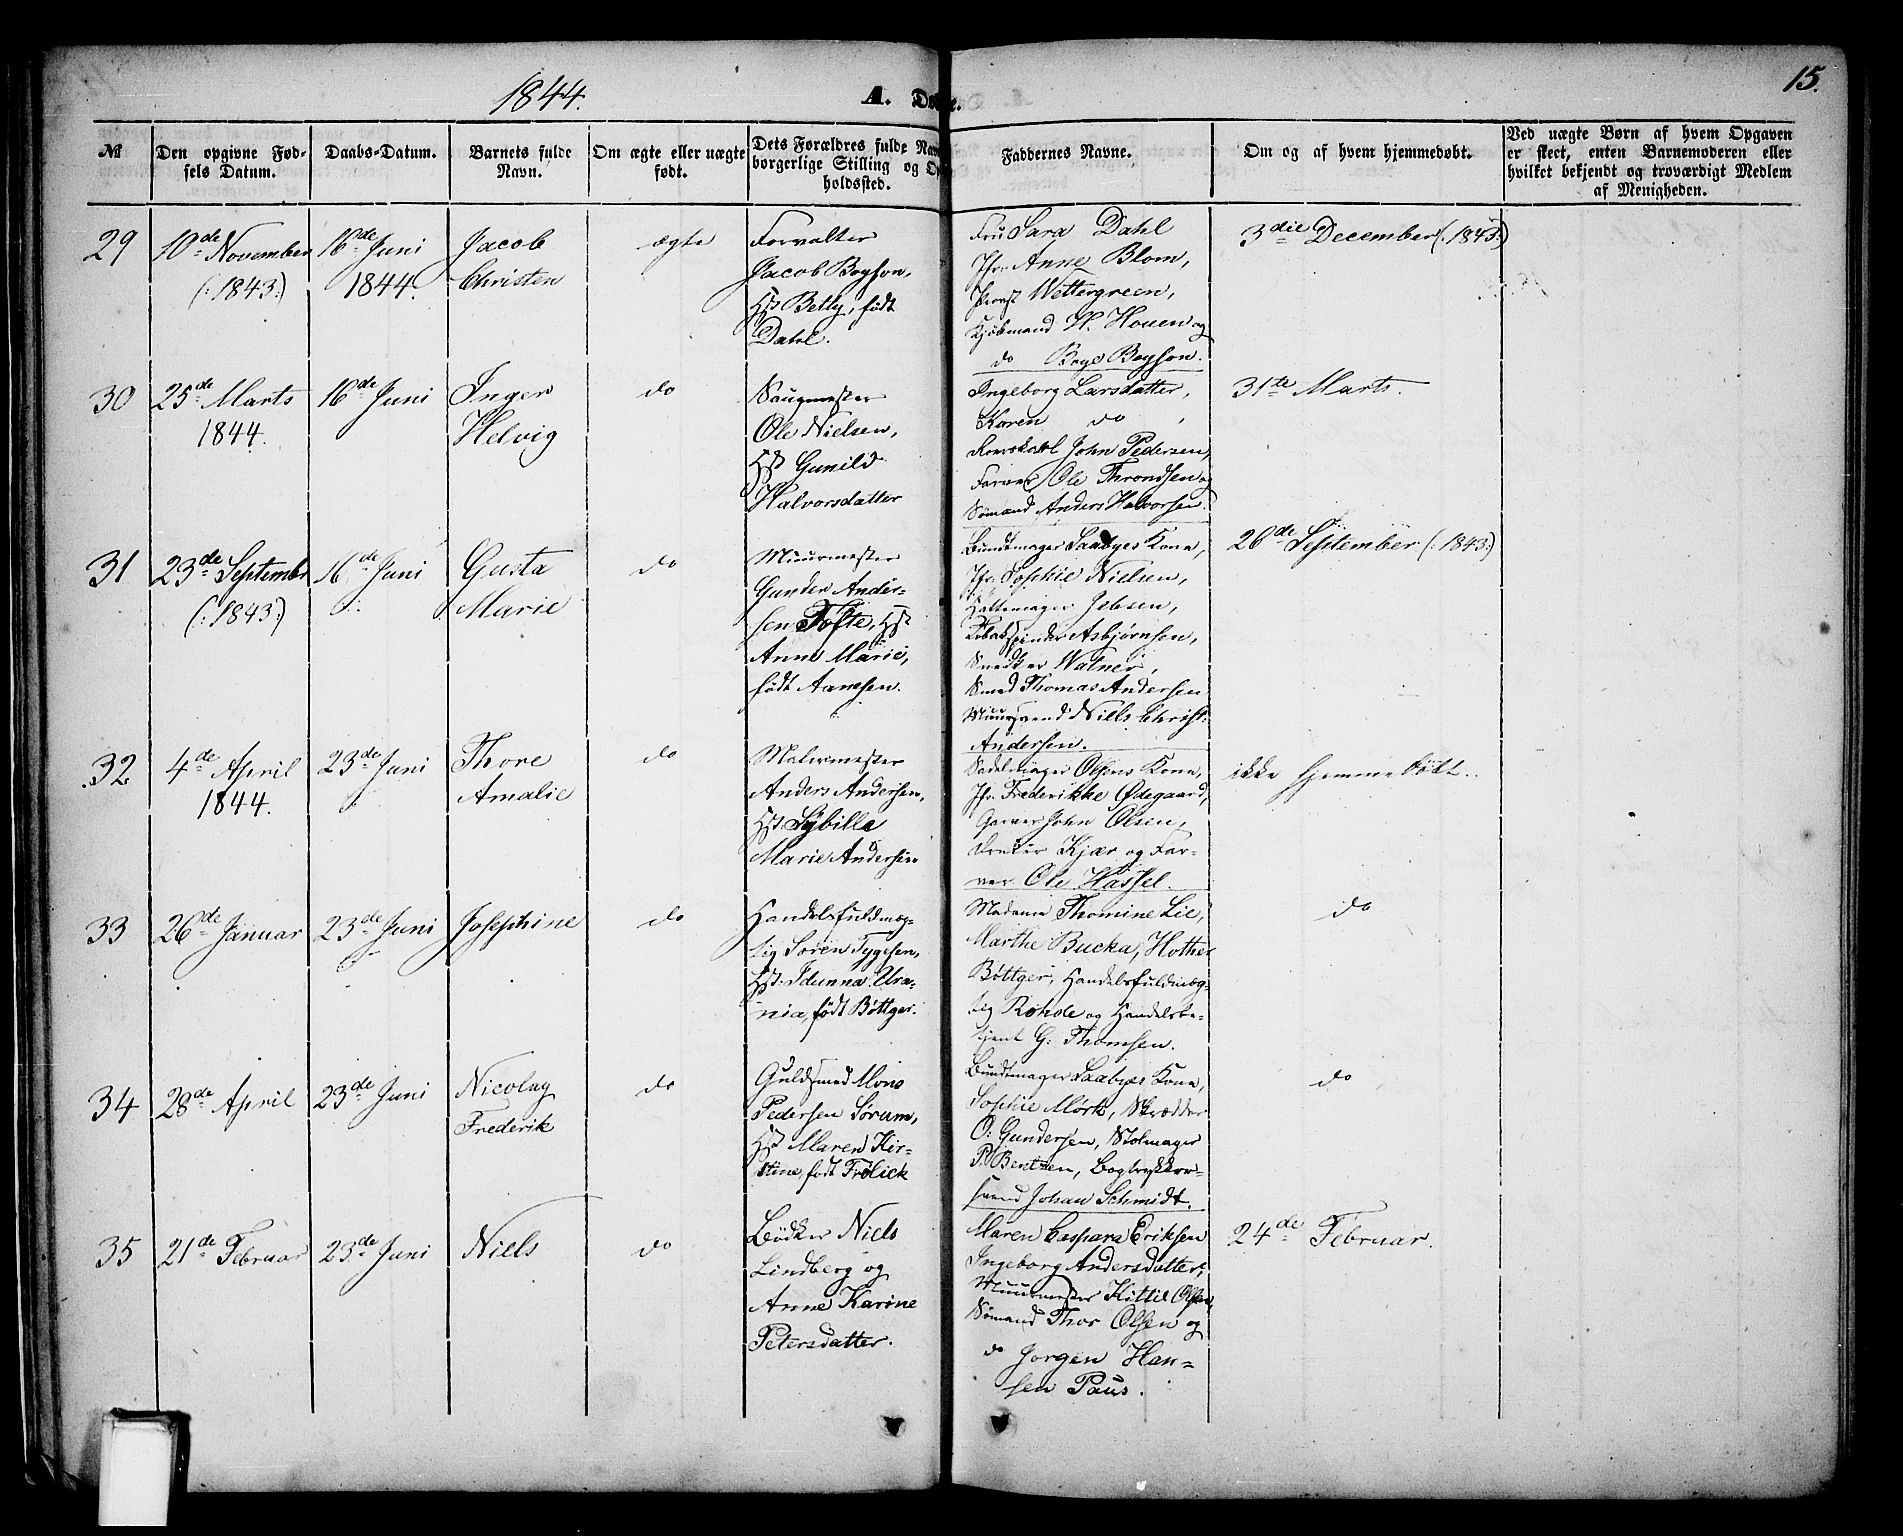 1844.
A. Døbte.
15.
№
Den opgivne Fød-
sels Datum.
Daabs-Datum.
Barnets fulde
Navn.
Om ægte eller uægte
født.
Dets Forældres fulde Nav
borgerlige Stilling og Op
holdssted.
Faddernes Navne.
Om og af hvem hjemmedøbt.
Ved uægte Børn af hvem Opgaven
er skeet, enten Barnemoderen eller
hvilket bekjendt og troværdigt Medlem
af Menigheden.
29
10de November
(:1843:)
16de Juni
1844.
Jacob
Christen
ægte
Forvalter
Jacob Boyson,
Hst Betty, født
Dahl.
Fru Sara Dahl
Jfr. Anne Blom,
Provst Wettergreen,
Kjøbmand H. Houen og
do Boye Boyson.
3die December (:1843:)
30
25de Marts
1844.
16de Juni
Inger
Helvig
do
Saugmester
Ole Nielsen,
Hst Gunild
Halvorsdatter
Ingeborg Larsdatter,
Karen do,
John Pedersen,
Farver Ole Throndsen og
Sømand Anders Halvorsen.
31te Marts.
31
23de Septembr
(:1843:)
16de Juni
Gusta
Marie
do
Muurmester
Gunder Ander-
sen Tofte, Hst
Anne Marie,
født Aamsen.
Bundtmager Saabyes Kone,
Jfr. Sophie Nielsen,
Hattemager Jebsen,
Tobakspinder Asbjørnsen,
Snedker Watner,
Smed Thomas Andersen
Muursvend Niels Christ.
Andersen.
26de September (:1843:)
32
4de April
1844.
23de Juni
Thore
Amalie
do
Malermester
Anders Andersen,
Hst. Sybille
Marie Andersen
Sadelmager Olsens Kone,
Jfr. Frederikke Ødegaard,
Garver John Olsen,
Dreier Kjær og Far-
ver Ole Hassel.
ikke hjemmedøbt.
33
26de Januar
23de Juni
Josephine
do
Handelsfuldmæg-
tig Søren Tygesen,
Hst. Idunna Ura-
nia, født Bøttger.
Madame Thomine Lie,
Marthe Bucka, Hother
Bøttger, Handelsfuldmæg-
tig Rohde og Handelsbe-
tjent G. Thomsen.
do
34
28de April
23de Juni
Nicolay
Frederik
do
Guldsmed Mons
Pedersen Sørum,
Hst Maren Kir-
stine, født Frølick
Bundtmager Saabyes Kone,
Sophie Mørk, Skrædder
O. Gundersen, Stolmager
P. Bentzen, Bogtrykker-
svend Johan Schmidt.
do
35
21de Februar
23de Juni
Niels
do
Bødker Niels
Lindberg og
Anne Karine
Petersdatter.
Maren Caspara Eriksen
Ingeborg Andersdatter,
Muurmester Kittil Olsen,
Sømand Thor Olsen og
do Jørgen Han-
sen Paus.
24de Februar.